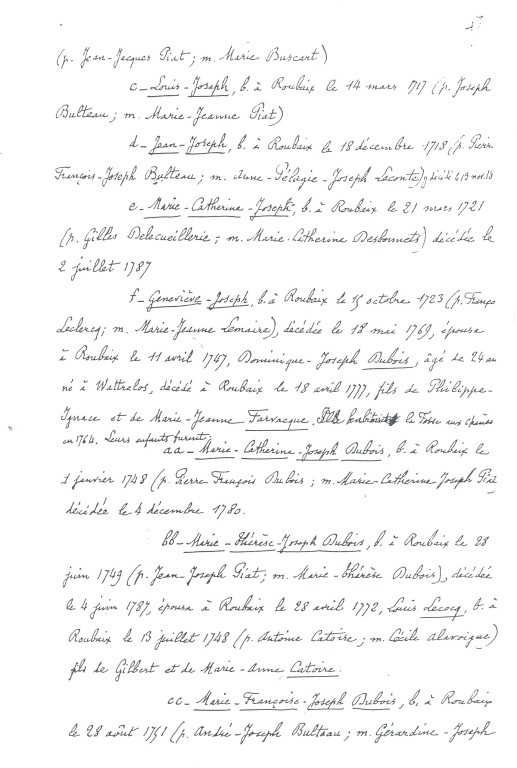 (p. Jean-Jacques Piat ; m. Marie Buscart)
c - Louis-Joseph, b. à Roubaix le 14 mars 1717 (p. Joseph
Bulteau ; m. Marie-Jeanne Piat)
d - Jean-Joseph, b. à Roubaix le 18 décembre 1718 (p. Pierre
François-Joseph Bulteau ; m. Anne-Pélagie-Joseph Leconte) y décédé
e - Marie-Catherine-Joseph, b. à Roubaix le 21 mars 1721
(p. Gilles Delecueillerie ; m. Marie-Catherine Desbonnets) décédée le
2 juillet 1787
f - Geneviève-Joseph, b. à Roubaix le 15 octobre 1723 (p. Franço
Leclercq ; m. Marie-Jeanne Lemaire), décédée le 18 mai 1769, épousa
à Roubaix le 11 avril 1747, Dominique-Joseph Dubois, âgé de 24 an
né à Wattrelos, décédé à Roubaix le 18 avril 1777, fils de Philippe-
Ignace et de Marie-Jeanne Farvacque, la Fosse aux chênes
en 1764. Leurs enfants furent,
aa - Marie-Catherine-Joseph Dubois, b. à Roubaix le
1 janvier 1748 (p. Pierre François Dubois ; m. Marie-Catherine Joseph Piat
décédée le 4 décembre 1780.
bb - Marie-Thérèse-Joseph Dubois, b. à Roubaix le 28
juin 1749 (p. Jean-Joseph Piat ; m. Marie-Thérèse Dubois), décédée
le 4 juin 1787, épousa à Roubaix le 28 avril 1772, Louis Lecocq, b. à
Roubaix le 13 juillet 1748 (p. Antoine Catoire ; m. Cécile Alavoique)
fils de Gilbert et de Marie-Anne Catoire.
cc - Marie-Françoise-Joseph Dubois, b. à Roubaix
le 28 août 1751 (p. André-Joseph Bulteau ; m. Gérardine-Joseph